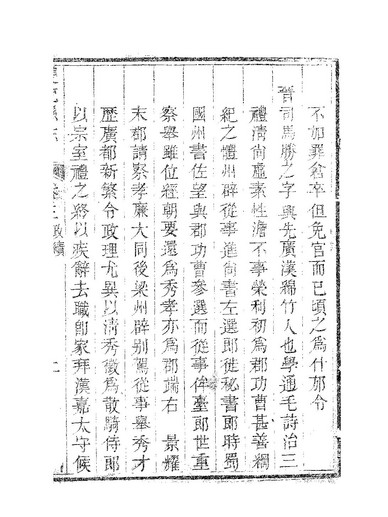 不如罪咎卒但免官而已頃之為什邡令
晉司馬勝之字興先廣漢綿竹人也學通毛詩治三
禮清尚虛素性澹不事榮利初為郡功曹甚善綱
紀之體州辟從事進尚書左選郎徙秘書郎時蜀
國州書佐望與郡功曹參選而從事侔臺郎世重
察舉雖位經朝要還為秀孝亦為郡端右 景耀
末郡請察孝廉大同後梁州辟別駕從事舉秀才
歷廣都新繁令政理尤異以清秀徵為散騎侍郎
以宗室禮之終以疾辭去職即家拜漢嘉太守候
卷三 政績